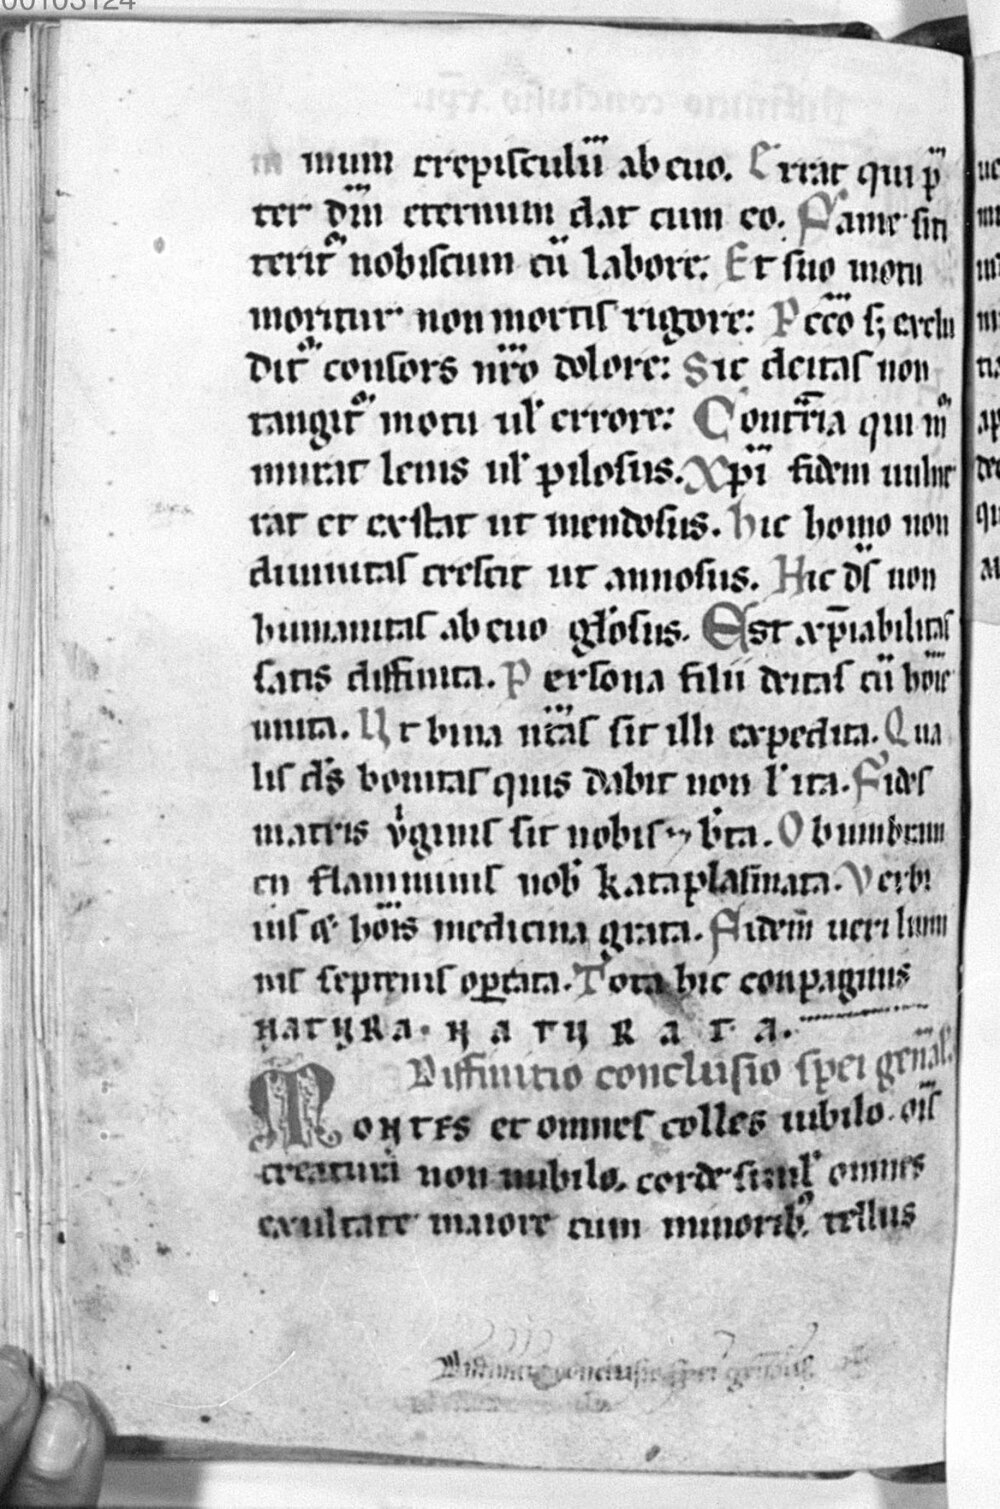 00103124
mum crepisculū ab euo. Errat qui p̄
ter dm̄ eternum dat cum eo. Fame siti
terit᷑ nobiscum cū labore: Et suo motu
moritur non mortis rigore: Pcc̄o sꝫ exclu
dit᷑ consors nr̄o dolore: Sic deitas non
tangit᷑ motu ul̓ errore: Contr̄ia qui
mutat lenis ul̓ pilosus. Xp̄i fidem uulne
rat et exstat ut mendosus. Hic homo non
diuinitas crescit ut annosus. Hic ds̄ non
humanitas ab euo gl̓osus. Est xp̄iabilitas
satis diffinita. Persona filii deitas cū hōīe
unita. Ut bina nt̄as sit illi expedita. Qua
lis ds̄ bonitas quis dabit non l̓ ita. Fides
matris v̓ginis sit nobis b̓ta. Obumbram
en flamminis nob̓ kataplasmata. Verbi
hōīs medicina grata. Fidem̄ ueri lumi
nis septenis optata. Tota hic conpaginis
natura. naturata.
Diffinitio conclusio spei gen̄al.
Montes et omnes colles iubilo. oīs
creatura non nubilo. corde simul̓ omnes
exultate maiore cum minorib᷒. tellus